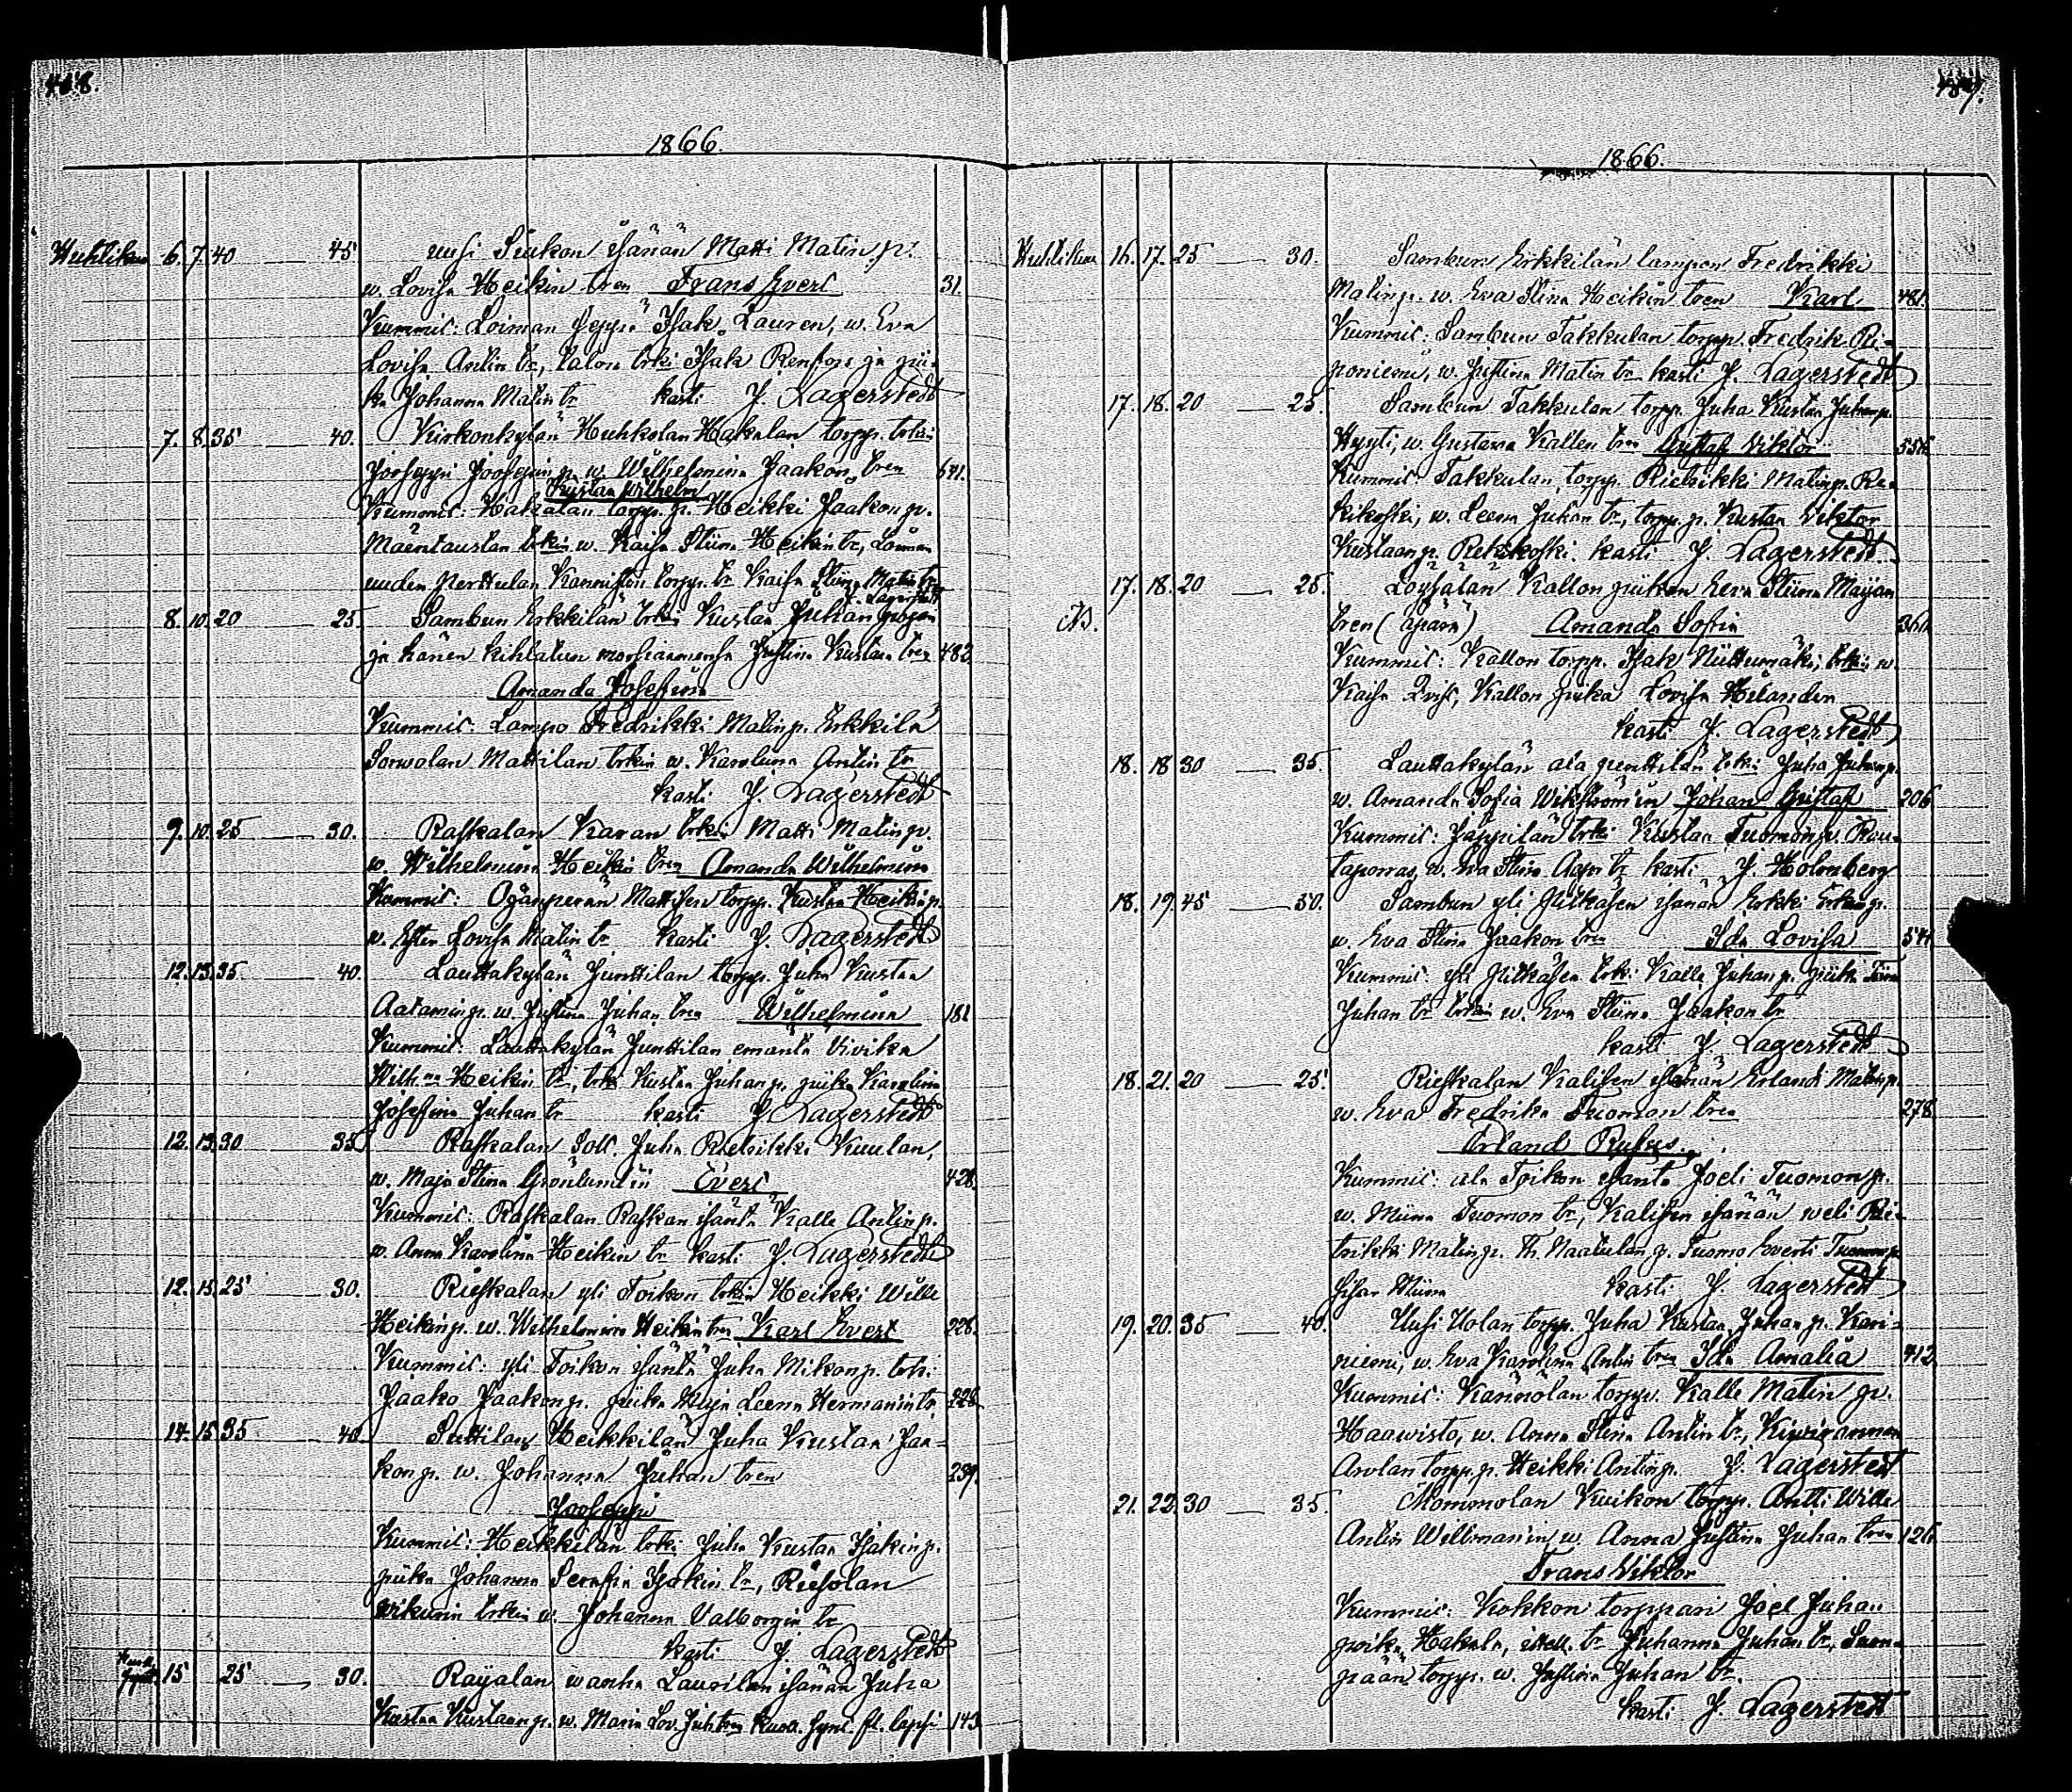 1866.
Huhtikuu 6. 7. 40 — 45 uusi Siukon isännän Matti Matin p.
w. Lovisa Heikin tren Frans Evert 31.
Kummit: Loiman seppä Isak Lauren, w. Eva
Lovisa Antin tr, talon trki Isak Renfors ja pii-
ka Johanna Matin tr kasti J. Lagerstedt
7. 8. 35 — 40. Kirkonkylän Huhkolan Hakalan torpp.
Jooseppi Joosepin p. w. Wilhelmina Jaakon tren 641.
Kustaa Wilhelm
Kummit: Hakalan torpp. p. Heikki Jaakon p.
Mäentaustan trkin w. Kaisa Stiina Heikin tr,
uuden Perttulan Kanniston torpp. tr Kaisa Stiina Matin tr
J. Lagerstedt
8. 10. 20 — 25. Sambun Erkkilän trki Kustaa Juhan pojan
ja hänen kihlatun morsiamensa Justina Kustaan tren 482
Amanda Josefina
Kummit: Lampo Fredrikki Matin p. Erkkilä
Sorwolan Mattilan trkin w. Karolina Antin tr
kasti J. Lagerstedt
9. 10. 25 — 30. Raskalan Karan trki Matti Matin p.
w. Wilhelmina Heikin tren Amanda Wilhelmina
Kummit: Mattisen torpp. Kustaa Heikin p.
w. Ester Lovisa Matin tr kasti J. Lagerstedt
12. 13. 35 — 40. Lauttakylän Junttilan torpp. Juha Kustaa
Aatamin p. w. Justina Juhan tren Wilhelmina 181
Kummit: Lauttakylän Junttilan emäntä Vivika
Wilh:na Heikin tr, trki Kustaa Juhan p. piika Karolina
Josefina Juhan tr kasti J. Lagerstedt
12. 13. 30 — 35. Raskalan Sot. Juha Rietrikki Kuulan,
w. Maja Stina Grönlundin Evert 428.
Kummit: Raskalan Raskan isäntä Kalle Antin p.
w. Anna Karolina Heikin tr kasti J. Lagerstedt
12. 15. 25 — 30. Rieskalan yli Toikon trkin Heikki Wille
Heikin p. w. Wilhelmina Heikin tren Karl Evert 228.
Kummit: yli Toikon isäntä Juha Mikon p. trki
Jaako Jaakon p. piika Maja Leena Hermanin tr 228
14. 15. 35 — 40. Suttilan Heikkilän Juha Kustaa Jaa-
kon p. w. Johanna Juhan tren 239.
Jooseppi
Kummit: Heikkilän trki Juha Kustaa Isakin p.
piika Johanna Serafia Isakin tr, Riesolan
trkin w. Johanna Valborgin tr
kasti J. Lagerstedt
15 25 — 30. Raijalan wanha Laurilan isännän Juha
Kustaa Kustaan p. w. Maria Lov. Juh. tren lapsi 143
1866.
Huhtikuu 16. 17. 25 — 30. Sambun Erkkilän lampon Fredrikki
Matin p. w. Eva Stina Heikin tren Karl 481.
Kummit: Sambun Takkulan torpp. Fredrik Ri-
poniemi, w. Justina Matin tr kasti J. Lagerstedt
17. 18. 20 — 25. Sambun Takkulan torpp. Juha Kustaa Juhan p.
Hyyti, w. Gustawa Kallen tren Gustaf Viktor 556
Kummit: Takkulan torpp. Rietrikki Matin p. Re-
kikoski, w. Leena Juhan tr, torpp. p. Kustaa Viktor
Kustaan p. Rekikoski kasti J. Lagerstedt
17. 18. 20 — 25. Kallon piikan Eeva Stiina Maijan
tren (äpärä) Amanda Sofia 360
Kummit: Kallon torpp. Isak Niittumäki, trkin w.
Kaisa Qvist, Kallon piika Lovisa Helander
kasti J. Lagerstedt
18. 18 30 — 35. Lauttakylän ala penttilän trki Juha Juhan p.
w. Amanda Sofia Wikström'in Johan Gustaf 206
Kummit: Jäppilän trki Kustaa Tuomon p. Rau-
taporras, w. Eva Stina Aapr. tr kasti J. Holmberg
18. 19. 45 — 50. Sambun yli isännän Erkki Erkin p.
w. Eva Stina Jaakon tren Ida Lovisa 541
Kummit: yli trki Kalle Juhan p. piika Tiina
Juhan tr trkin w. Eva Stiina Jaakon tr
kasti J. Lagerstedt
18. 21. 20 — 25. Rieskalan Kalisen isännän Erlandi Matin p.
w. Eva Fredrika Tuomon tren 278
Erland Rufus
Kummit: ala Toikon isäntä Joeli Tuomon p.
w. Miina Tuomon tr, Kalisen isännän weli Rie-
trikki Matin p. Th. Naatulan p. Tuomo Everti Tuomon p.
sisar Miina kasti J. Lagerstedt
19. 20. 35 — 40. Uusi Uolan torpp. Juha Kustaa Juhan p. Kari-
niemi, w. Eva Karolina Antin tren Ida Amalia 412
Kummit: Kännölän torpp. Kalle Matin p.
Haawisto, w. Anna Stina Antin tr, Kiwirannan
Arolan torpp. p. Heikki Antin p. J. Lagerstedt
21. 22. 30 — 35. Mommolan Kuikon torpp. Antti Wille
Antin Willman'in w. Anna Justina Juhan tren 126
Frans Viktor
Kummit: Kokkon torppari Joel Juhan
poika Hakala, itsell. tr Juhanna Juhan tr, Suon-
pään torpp. w. Justina Juhan tr.
kasti J. Lagerstedt